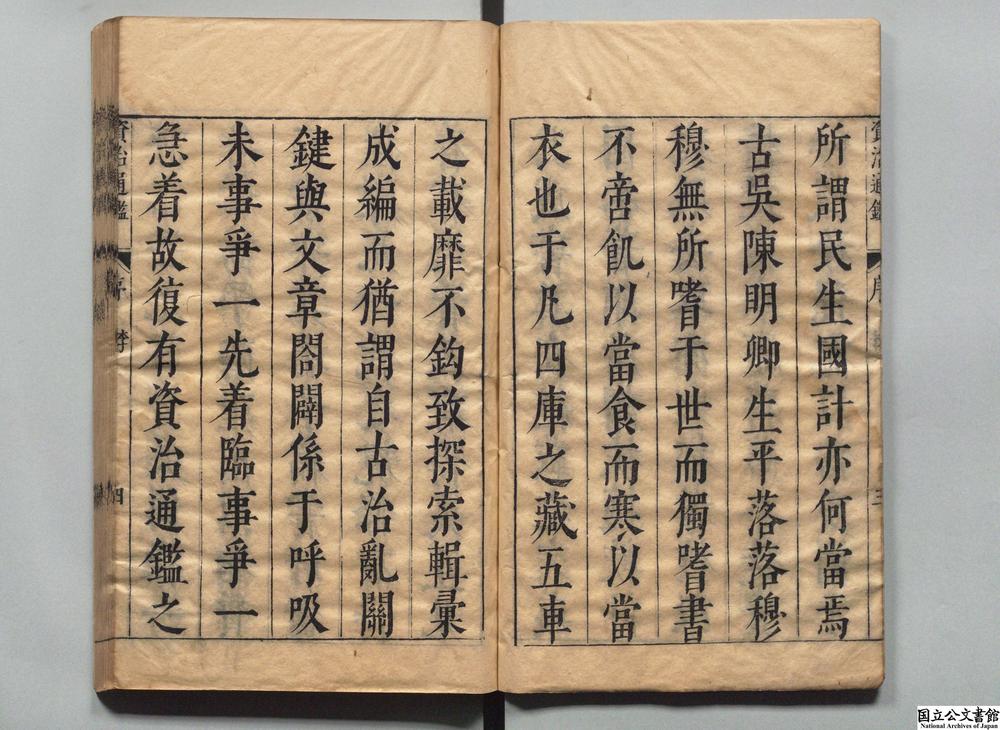 所謂民生國計亦何當焉
古吳陳明卿生平落落穆
穆無所嗜于世而獨嗜書
不啻飢以當食而寒以當
衣也于凡四庫之藏五車
資治通鑑 序 四
之載靡不鈎致探索輯彙
成編而猶謂自古治亂關
鍵與文章闔闢係于呼吸
未事爭一先着臨事爭一
急着故復有資治通鑑之
国立公文書館
National Archives of Japan